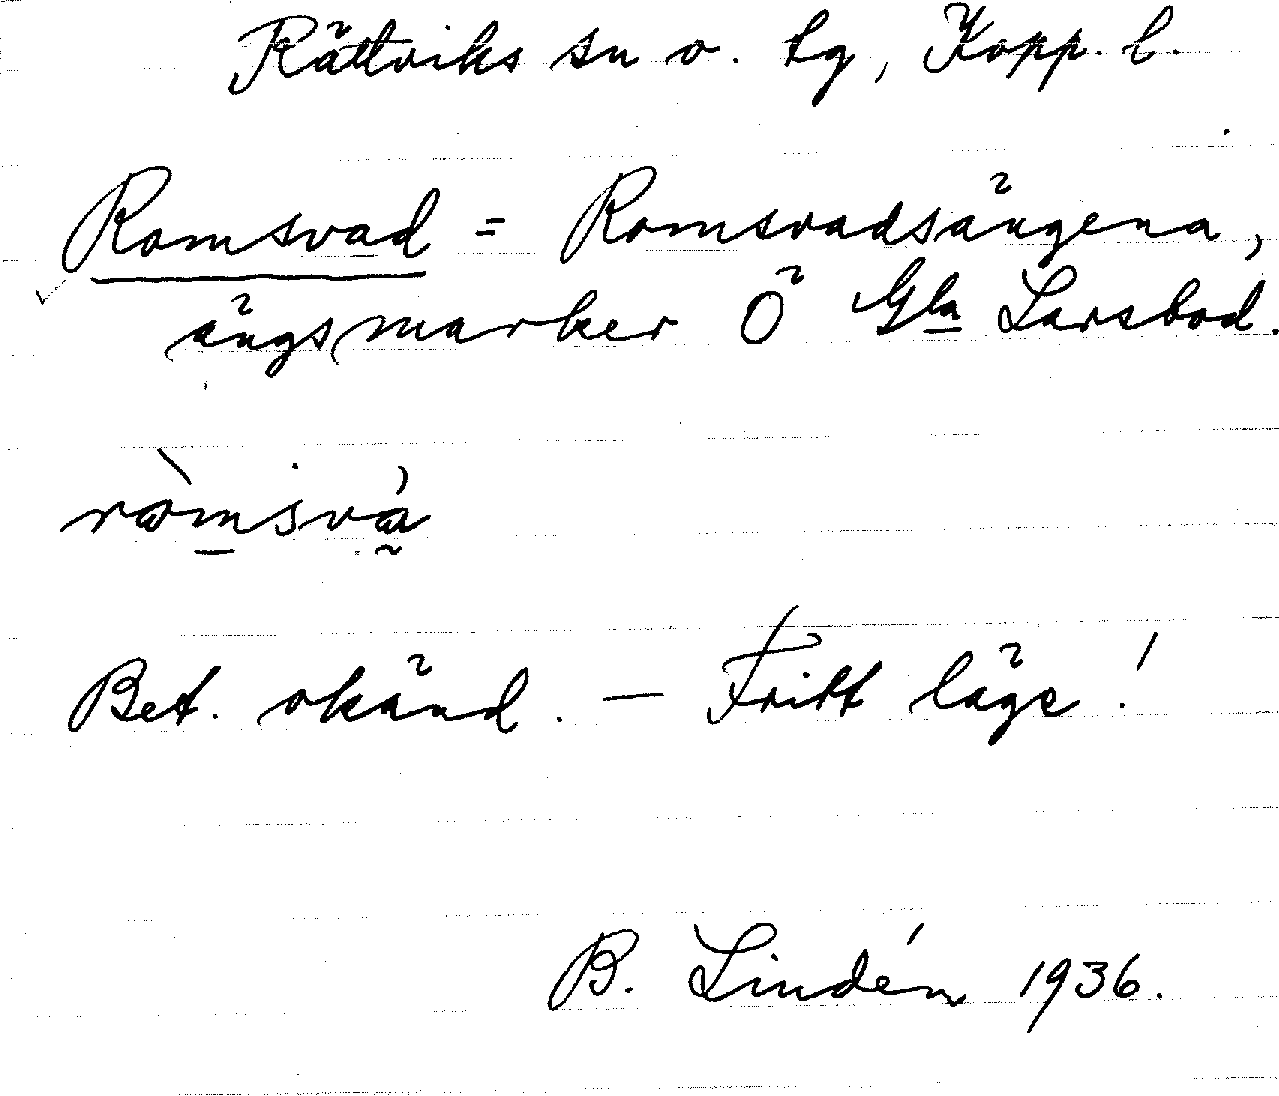 Rättviks sn o. tg, Kopp. l.
Romsvad = Romsvadsängena,
ängsmarker Ö Gla Larsbod.
ròmsvá
Bet. okänd. — Fritt läge!
B. Lindén 1936.